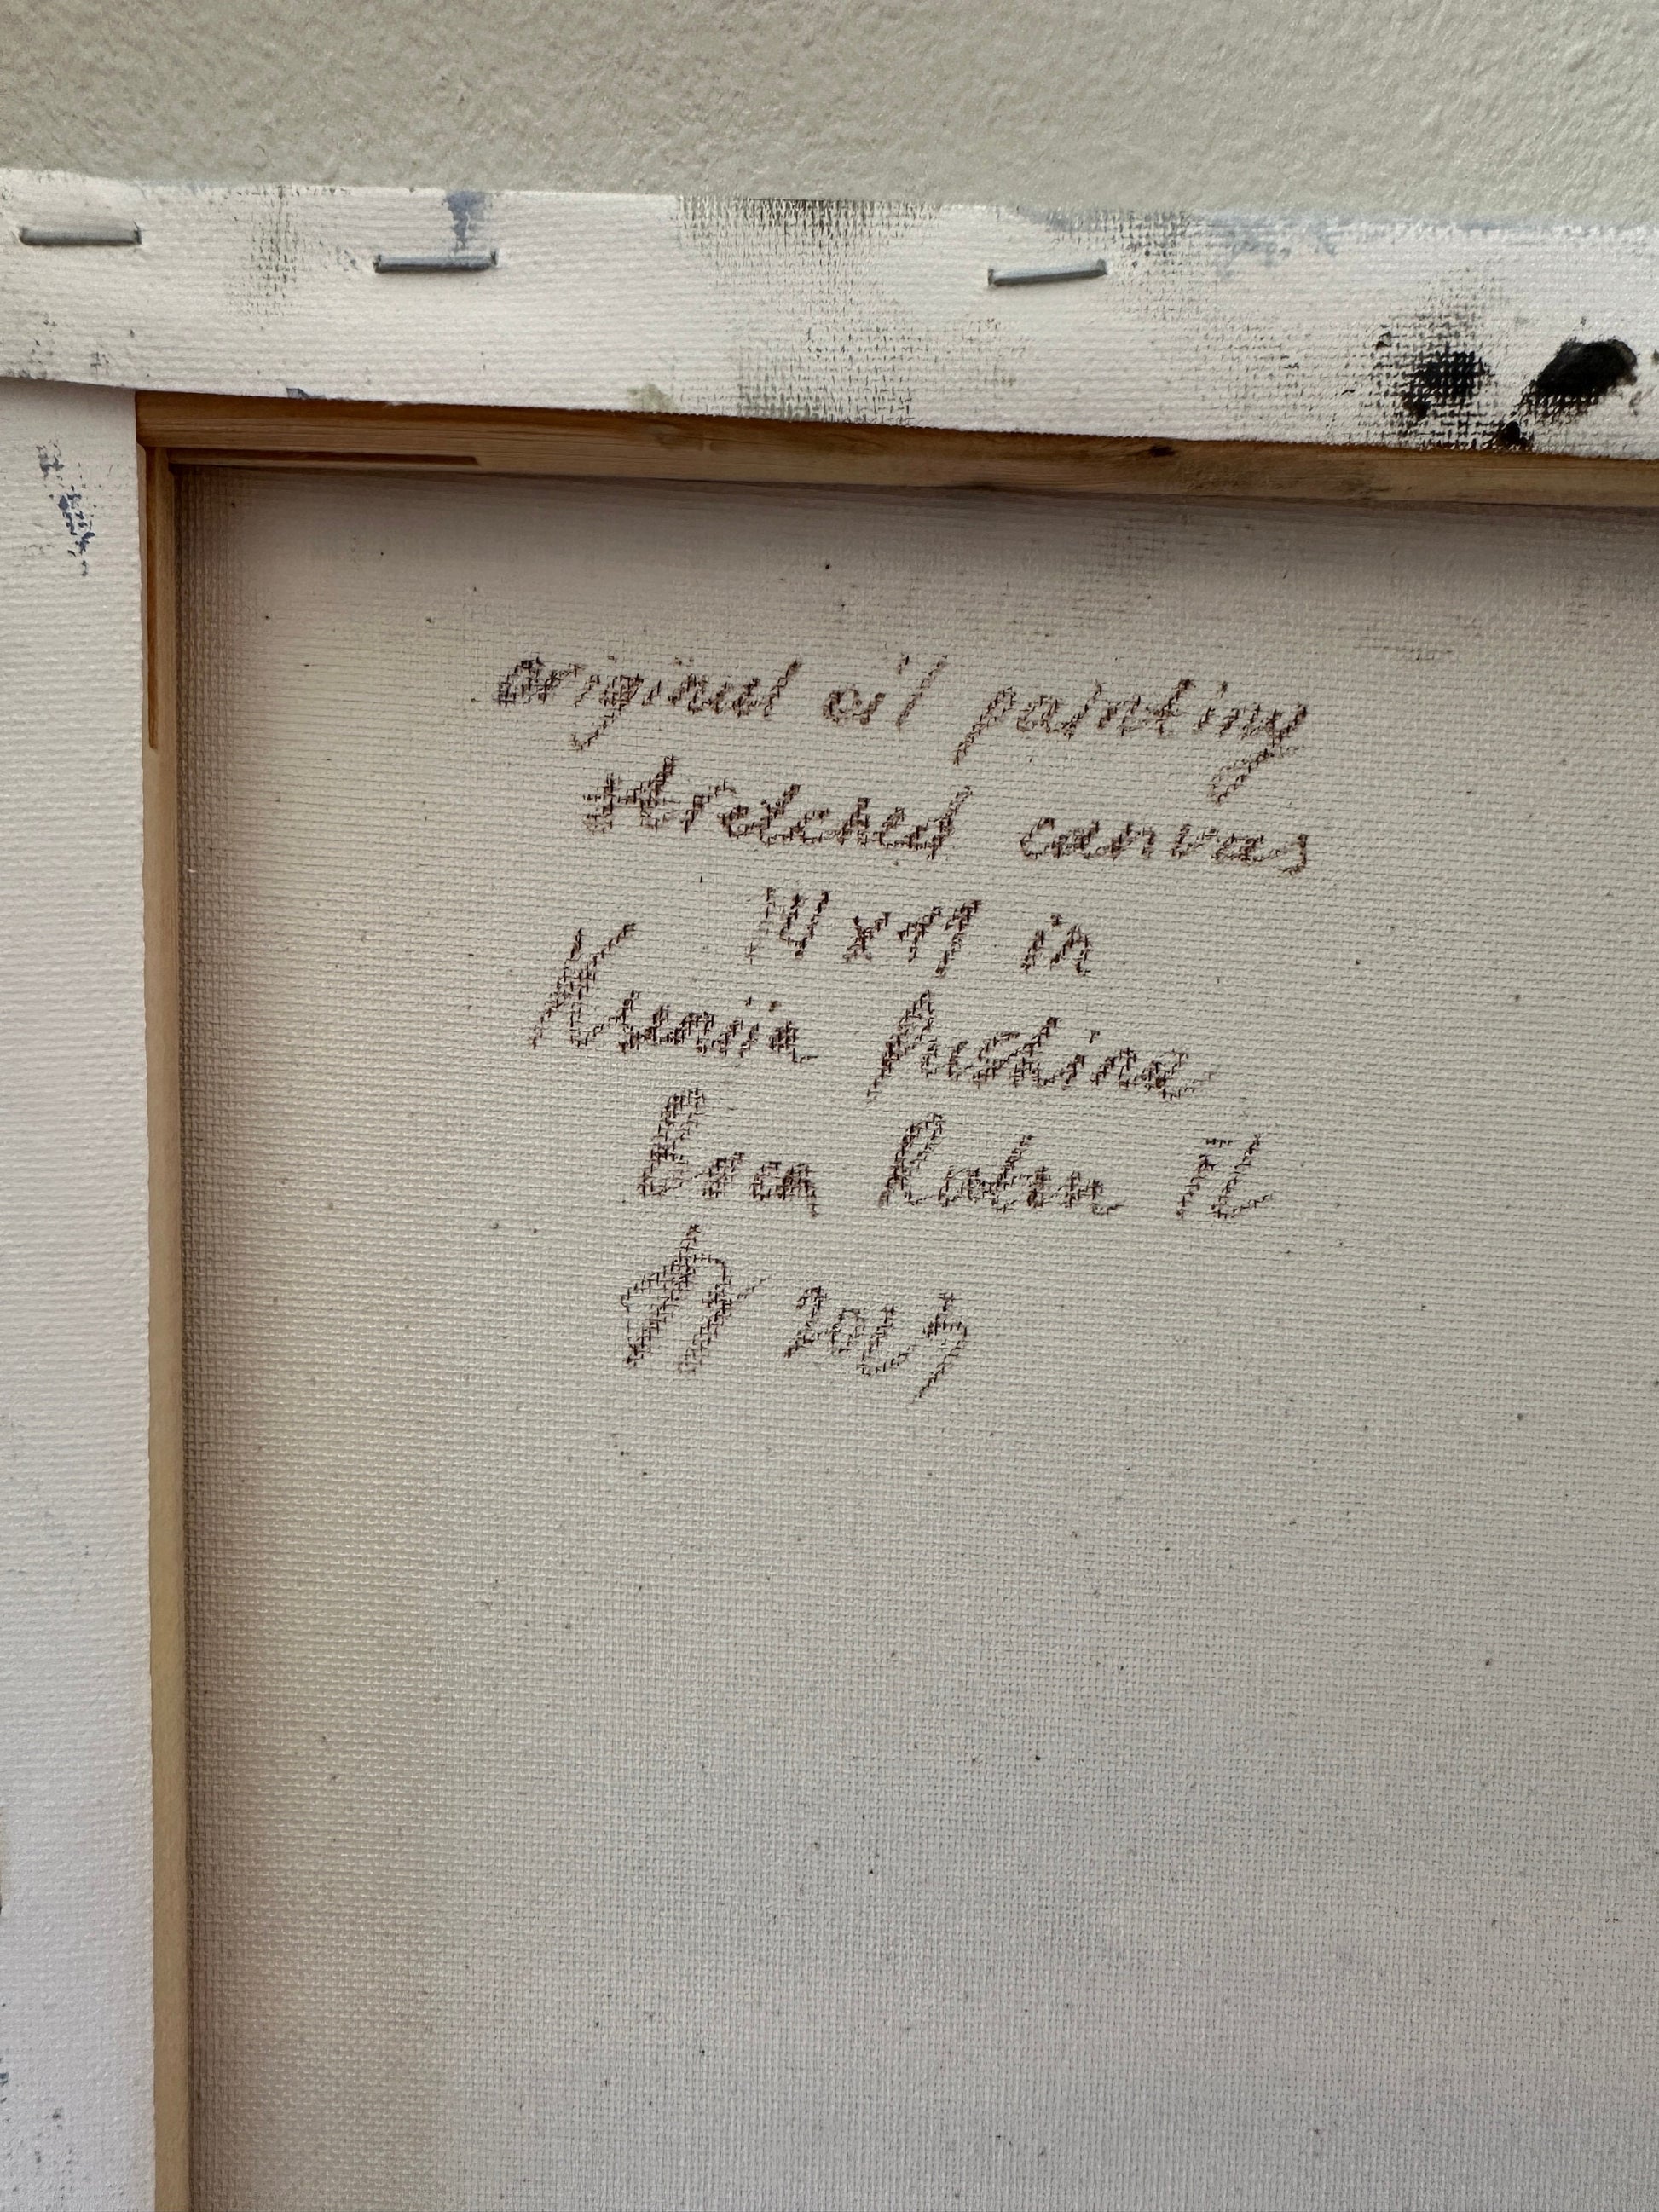 original oil painting
stretched canvas
x 11 in
Ksenia
Boca Raton FL